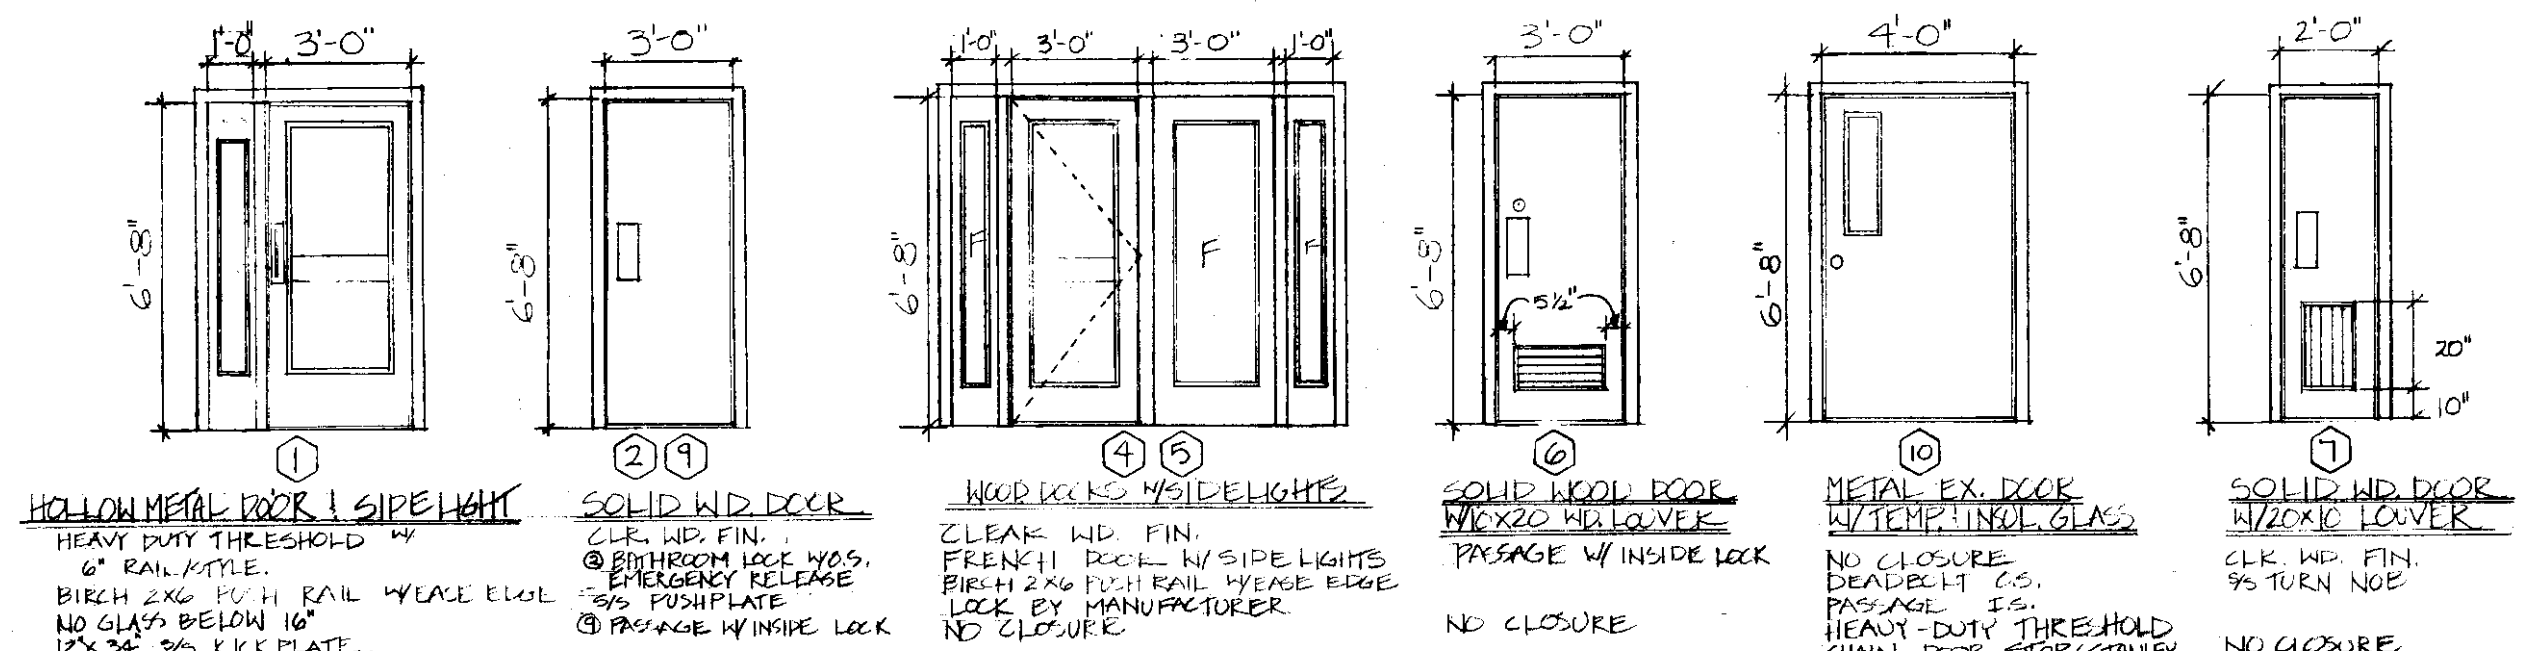 1'-0" 3'-0"
6'-8"
1
HOLLOW METAL DOOR & SIDELIGHT
HEAVY DUTY THRESHOLD W/
6" RAIL/STYLE.
BIRCH 2X6 PUSH RAIL W/EASE EDGE
NO GLASS BELOW 16"
12"X 34" S/S KICK PLATE
3'-0"
6'-8"
2 9
SOLID WD. DOOR
CLR. WD. FIN.
② BATHROOM LOCK W/O.S.
EMERGENCY RELEASE
S/S PUSHPLATE
⑨ PASSAGE W/ INSIDE LOCK
1'-0" 3'-0" 3'-0" 1'-0"
6'-8"
F F F
4 5
WOOD DOORS W/SIDELIGHTS
CLEAR WD. FIN.
FRENCH DOOR W/ SIDE LIGHTS
BIRCH 2X6 PUSH RAIL W/EASE EDGE
LOCK BY MANUFACTURER
NO CLOSURE
3'-0"
6'-8"
5½"
6
SOLID WOOD DOOR
W/10X20 WD. LOUVER
PASSAGE W/ INSIDE LOCK
NO CLOSURE
4'-0"
6'-8"
10
METAL EX. DOOR
W/ TEMP. & INSUL. GLASS
NO CLOSURE
DEADBOLT O.S.
PASSAGE I.S.
HEAVY-DUTY THRESHOLD
CHAIN DOOR STOP/STANLEY
2'-0"
6'-8"
20"
10"
7
SOLID WD. DOOR
W/20X10 LOUVER
CLR. WD. FIN.
S/S TURN NOB
NO CLOSURE